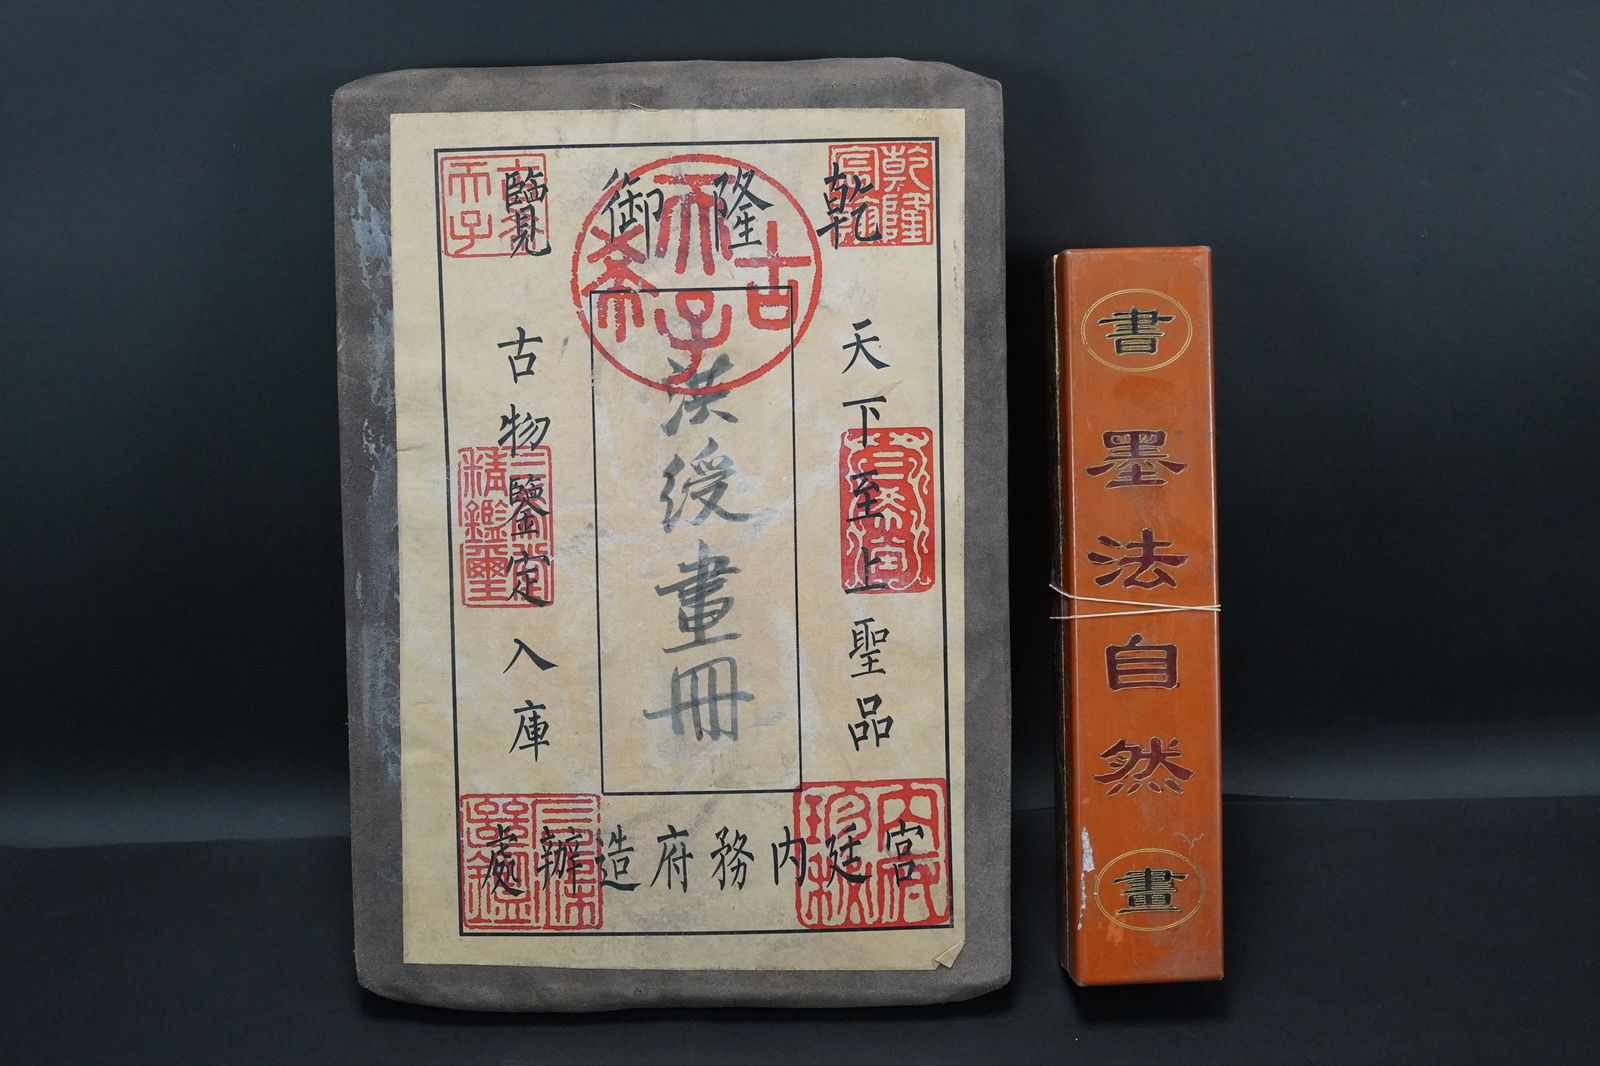 乾隆御覽
天下至上聖品
洪綬畫冊
古物鑒定入庫
宮廷內務府造辦處
乾隆
天子
古
天子
三
精鑑璽
書
墨法自然
畫